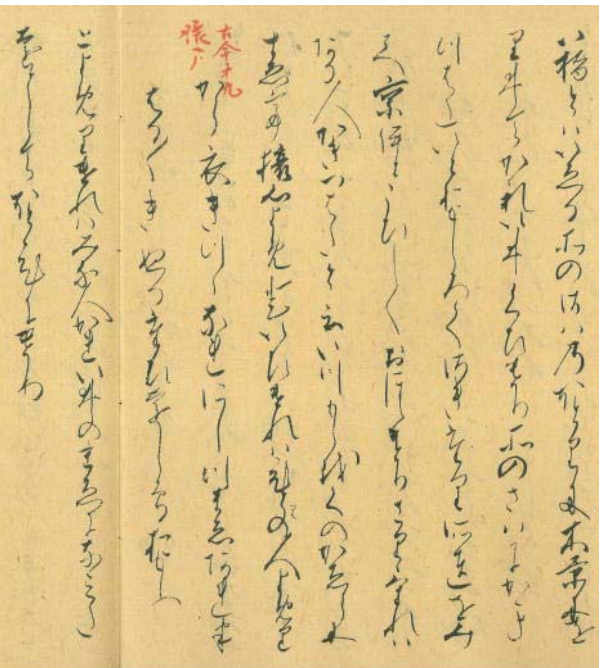 八橋といへる所のさはのほとりに木
りゐてかれいひくひけりそのさはにかき
つはたいとおもしろくさきたりそれをみ
て京いとこひしくおほえけりさりけれは
ある人かきつはたといふいつもしをくのかしらに
すゑて旅心よめといひけれはひとの人よめる
古今才九
から衣きつゝなれにしつましあれは
はる〱きぬるたひをしそおもふ
とよめりけれはみな人かれいひのうへになみた
おとしてほとひにけり